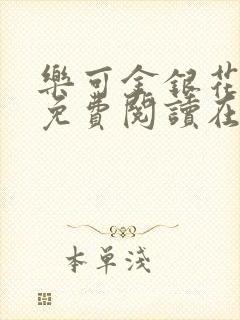 樂可金銀花
免費閱讀在
本單淺